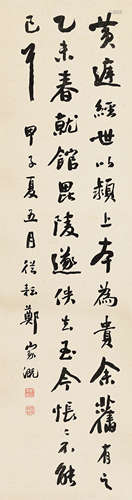 黃庭經世以潁上本為貴余舊有之
乙未春就館毘陵遂佚去至今悵悵不能
已已
甲子夏五月從耘鄭家溉